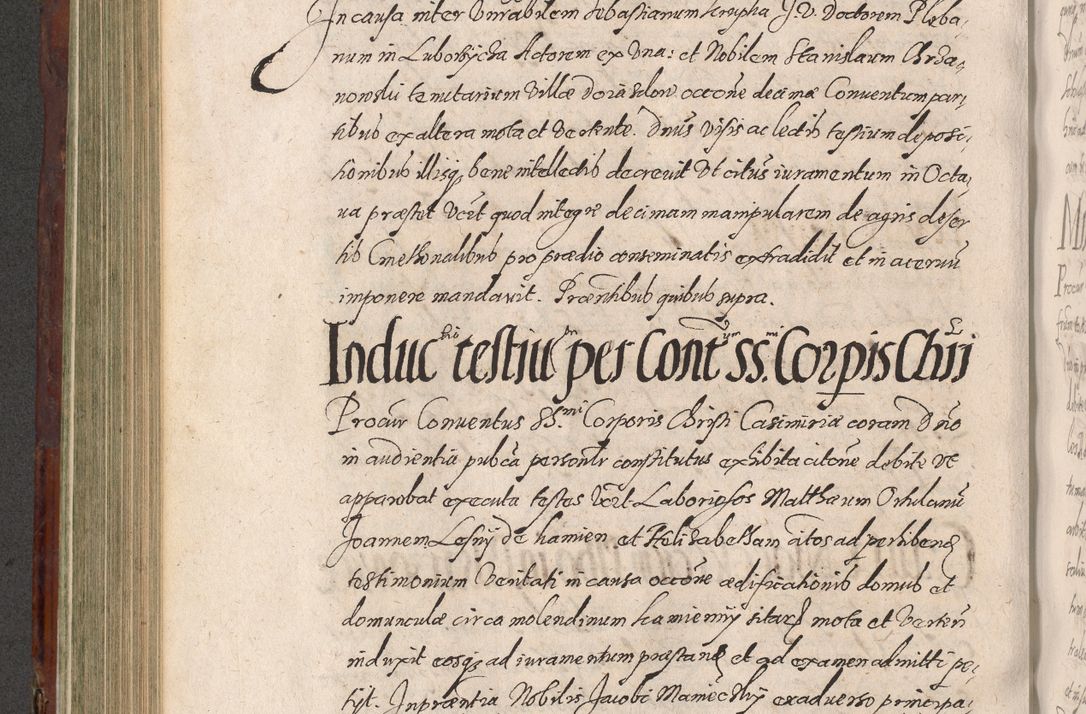 In causa inter Vnrabilem Sebastianum Krupka J. V. Doctorem Pleba,
num in Luborzycza Actorem ex vna: et Nobilem Stanislaum Chrza,
nowski tenutarium villæ occōne decimæ Conventum par,
tibus ex altera mota et vertente. Dnus visis ac lectis testium deposi,
tionibus illisq bene intellectis decrevit vt citus iuramentum in Octa,
ua præstet vcrt quod integre decimam manipularem de agris deser
tis Cmethonalibus pro prædio conseminatis extradidit et in acervū
imponere mandavit. Præntibus quibus supra.
Induc testiū per Cont SS. Corpis Chri
Procur Conventus SS.mi Corporis Christi Casimiriæ coram Dno
in audientia pubca personlr constitutus exhibita citōne debite vt
apparebat executa testes vcrt Laboriosos Matthæum
Joannem Lesny de Kamien et Helisabetham citos ad perhibend
testimonium veritati in causa occōne ædificationis domus et
domunculæ circa molendinum Kamieniy sitar mota et verten
induxit eosq ad iuramentum præstand et ad examen admitti pe,
tyt. In præntia Nobilis Jacobi ex adverso principa,